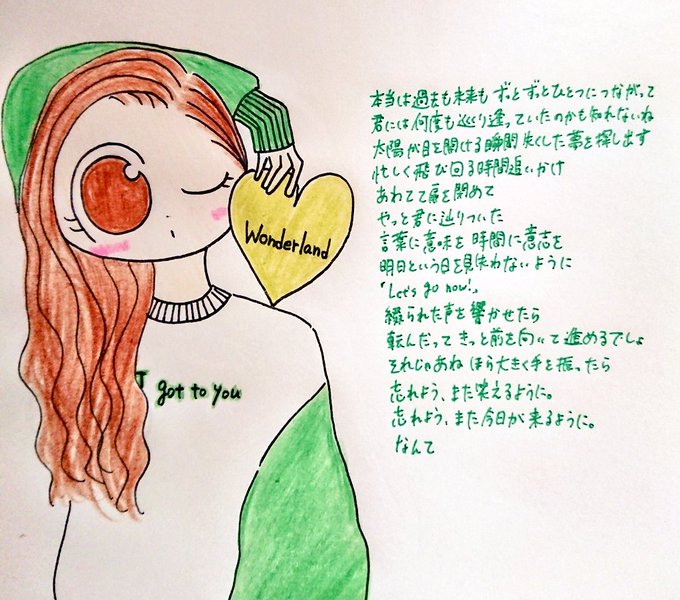 Wonderland
I got to you
本当は過去も未来も ずっとずっとひとつにつながって
君には何度も巡り逢っていたのかも知れないね
太陽が目を開ける瞬間 失くした葉を探し出す
忙しく飛び回る時間追いかけ
あわてて扉を閉めて
やっと君に辿りついた
言葉に意味を 時間に意志を
明日という日を見失わないように
「Let's go now!」
綴られた声を響かせたら
転んだって きっと前を向いて進めるでしょ
それじゃあね ほら大きく手を振ったら
忘れよう、また笑えるように。
忘れよう、また今日が来るように。
なんて